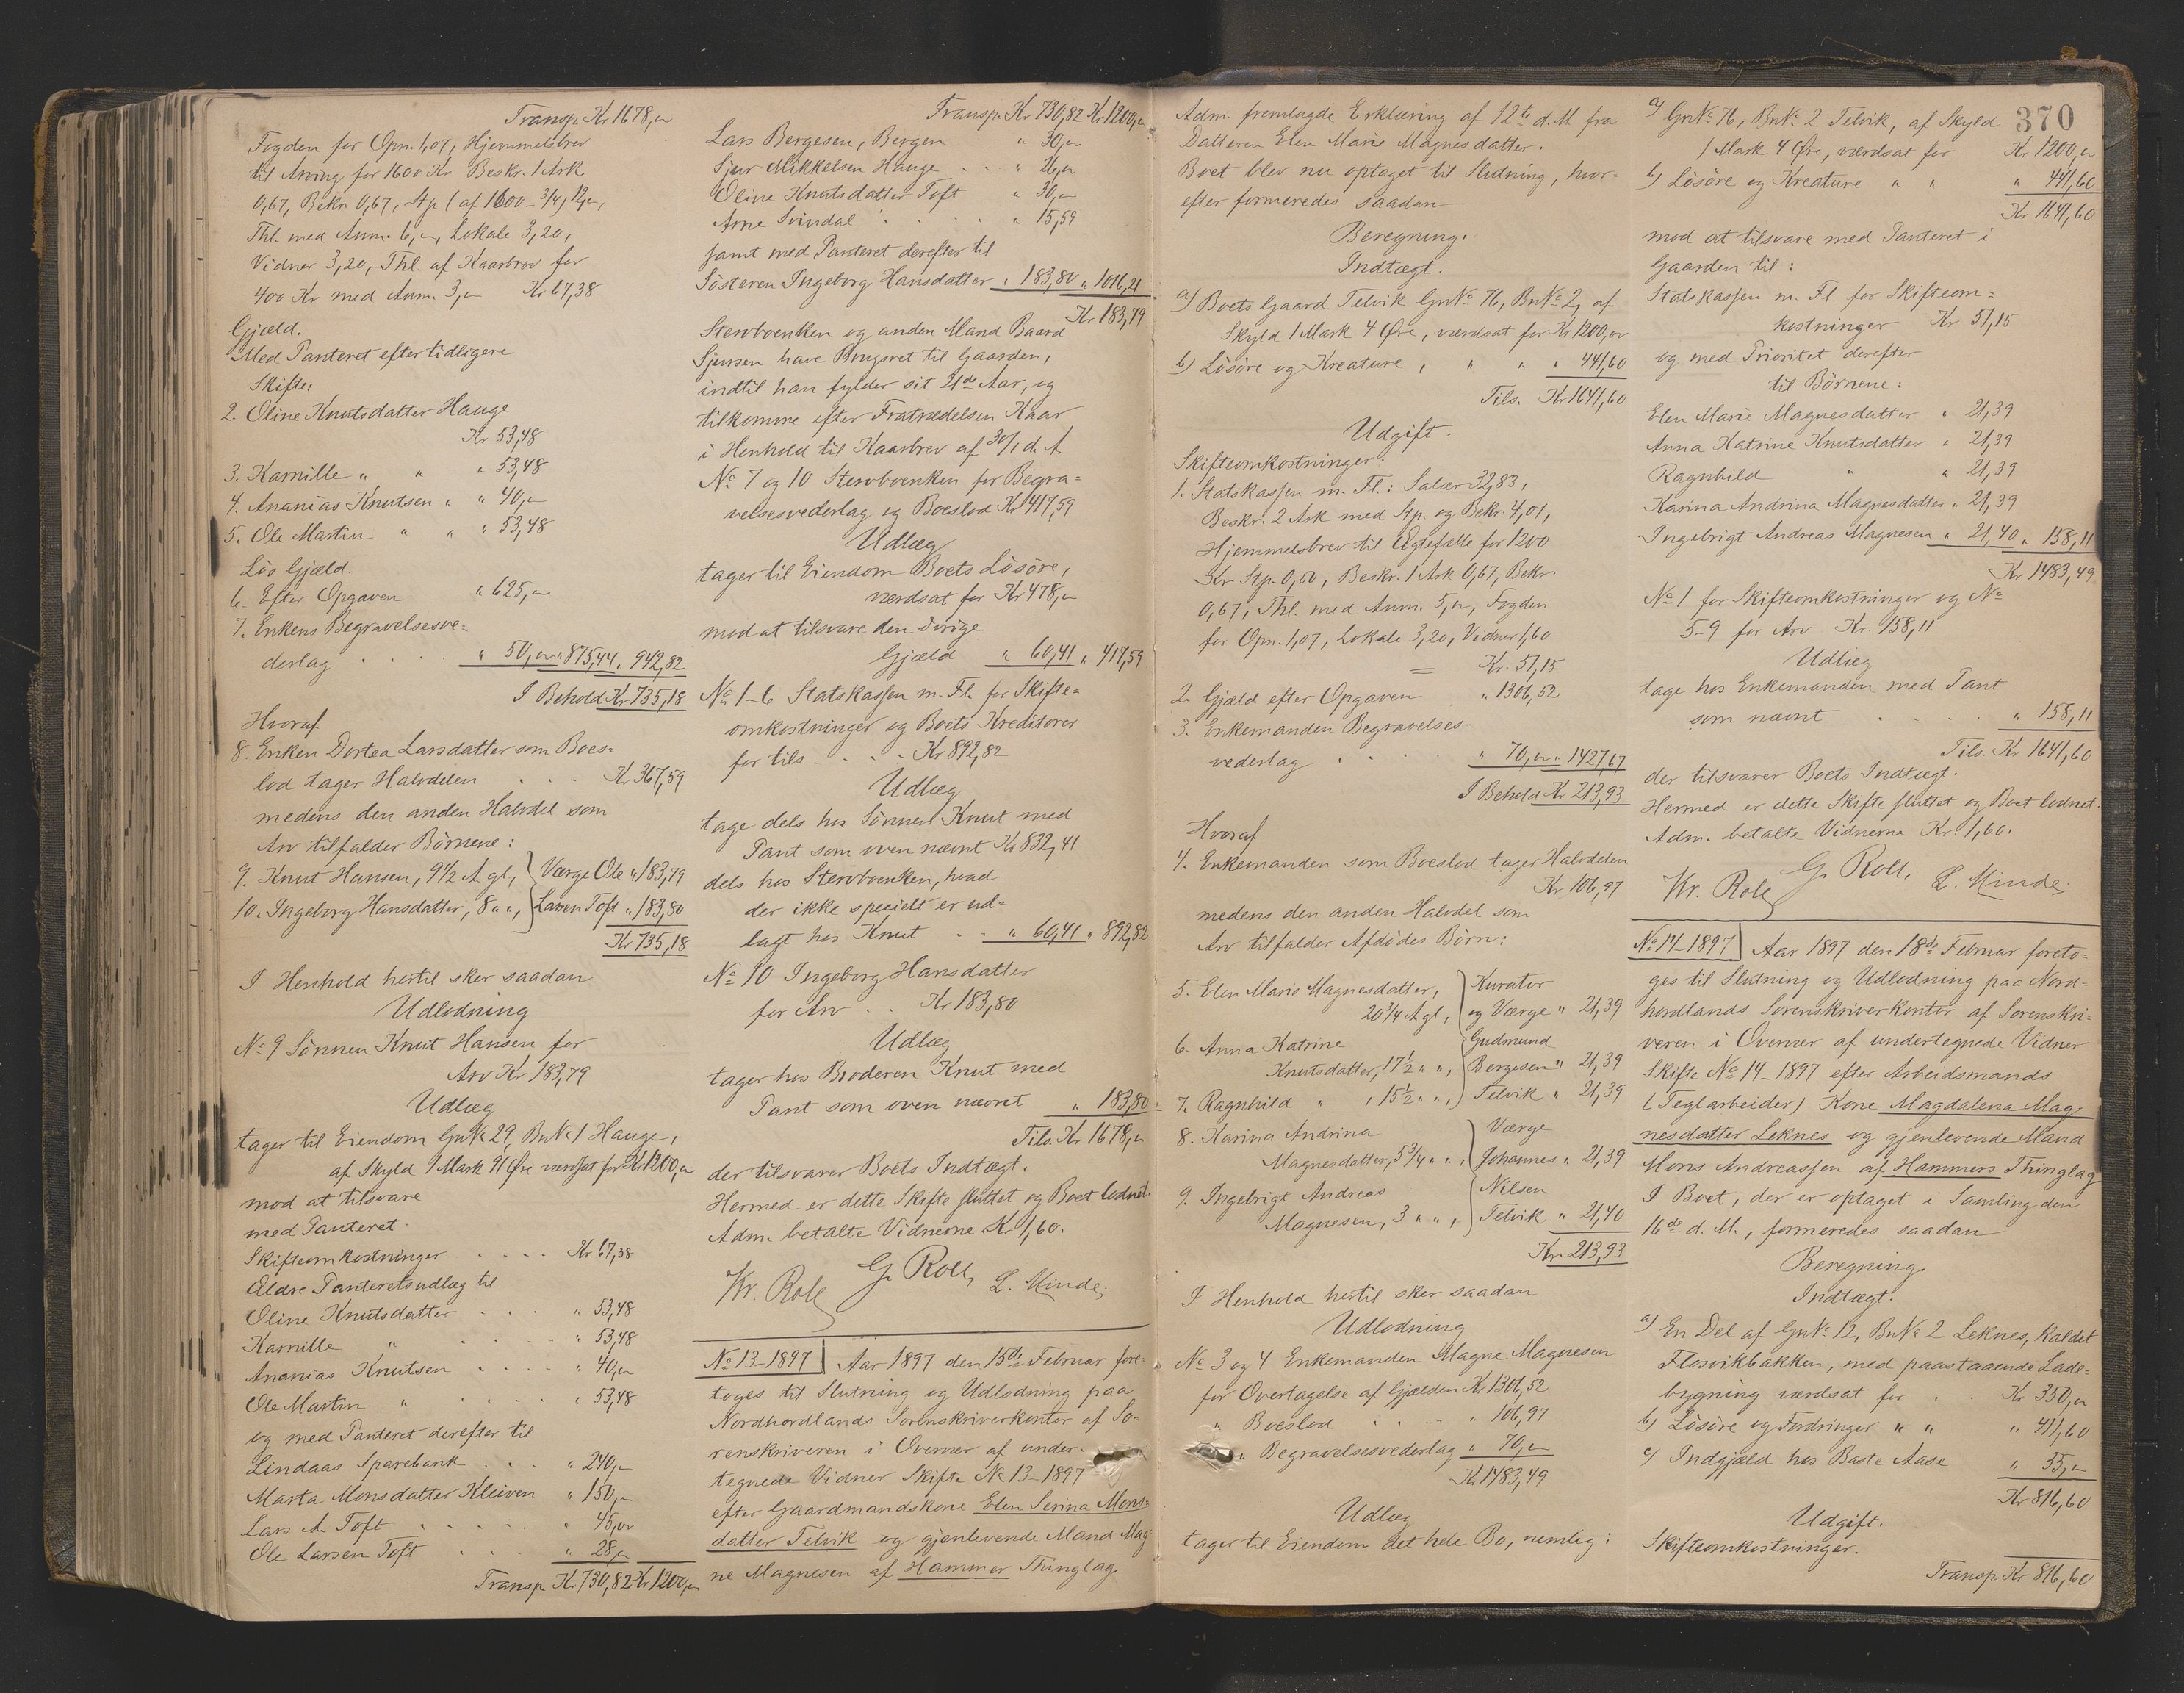 Transp. Kr 1678,„
Fogden for Opn. 1,07, Hjemmelsbrev
til Arving for 1600 Kr Beskr. 1 Ark
0,67, Bekr. 0,67, Stp. (af 1600 - 3/4) 12,„,
Thl. med Anm. 6,„, Lokale 3,20,
Vidner 3,20, Thl. af Kaarbrev for
400 Kr med Anm. 3,„ Kr 67,38
Gjæld.
Med Panteret efter tidligere
Skifte:
2. Oline Knutsdatter Hauge
Kr 53,48
3. Kamille „ „ „ 53,48
4. Ananias Knutsen „ „ 40,„
5. Ole Martin „ „ „ 53,48
Løs Gjæld.
6. Efter Opgaven „ 625,„
7. Enkens Begravelsesve=
derlag . . . . „ 50,„ „ 875,44 „ 942,82
I Behold Kr 735,18
Hvoraf
8. Enken Dortea Larsdatter som Boes=
lod tager Halvdelen . . . Kr 367,59
medens den anden Halvdel som
Arv tilfalder Børnene:
9. Knut Hansen, 9 1/2 A. gl, Værge Ole „ 183,79
10. Ingeborg Hansdatter, 8 „ „, Larsen Toft „ 183,80
Kr 735,18
I Henhold hertil sker saadan
Udlodning
No 9 Sønnen Knut Hansen for
Arv Kr 183,79
Udlæg
tager til Eiendom GnNo 29, BnNo 1 Hauge,
af Skyld 1 Mark 91 Øre værdsat for Kr 1200,„
mod at tilsvare
med Panteret.
Skifteomkostninger . . . . Kr 67,38
Ældre Panteretsudlæg til
Oline Knutsdatter . . . „ 53,48
Kamille „ . . . . „ 53,48
Ananias Knutsen . . . . „ 40,„
Ole Martin „ . . . . „ 53,48
og med Panteret derefter til
Lindaas Sparebank . . . „ 240,„
Marta Monsdatter Kleiven „ 150,„
Lars A. Toft . . . . . „ 45,„
Ole Larsen Toft . . . . „ 28,„
Transp. Kr 730,82 Kr 1200,„
Transp. Kr 730,82 Kr 1200,„
Lars Bergesen, Bergen „ 30,„
Sjur Mikkelsen Hauge . . „ 26,„
Oline Knutsdatter Toft „ 30,„
Arne Svindal . . . . „ 15,59
samt med Panteret derefter til
Søsteren Ingeborg Hansdatter „ 183,80 „ 1016,21
Kr 183,79
Stervboenken og anden Mand Baard
Sjursen have Brugsret til Gaarden,
indtil han fylder sit 21de Aar, og
tilkomme efter Fratrædelsen Kaar
i Henhold til Kaarbrev af 30/1 d. A.
No 7 og 10 Stervboenken for Begra=
velsesvederlag og Boeslod Kr 417,59
Udlæg
tager til Eiendom Boets Løsøre,
værdsat for Kr 478,„
mod at tilsvare den øvrige
Gjæld „ 60,41 „ 417,59
No 1-6 Statskassen m. Fl. for Skifte=
omkostninger og Boets Kreditorer
for tils. . . . Kr 892,82
Udlæg
tage dels hos Sønnen Knut med
Pant som oven nævnt Kr 832,41
dels hos Stervboenken, hvad
der ikke specielt er ud=
lagt hos Knut . . „ 60,41 „ 892,82
No 10 Ingeborg Hansdatter
for Arv . . Kr 183,80
Udlæg
tager hos Broderen Knut med
Pant som oven nævnt „ 183,80
Tils. Kr 1678,„
der tilsvarer Boets Indtægt.
Hermed er dette Skifte sluttet og Boet lodnet.
Adm. betalte Vidnerne Kr 1,60.
Kr. Role G. Roll, L. Minde.
No 13-1897 Aar 1897 den 15de Februar fore=
toges til Slutning og Udlodning paa
Nordhordlands Sorenskriverkontor af So=
renskriveren i Overvær af under=
tegnede Vidner Skifte No 13-1897
efter Gaardmandskone Elen Serina Mons=
datter Telvik og gjenlevende Mand Mag=
ne Magnesen af Hammer Thinglag.
Adm. fremlagde Erklæring af 12te d. M. fra
Datteren Elen Marie Magnesdatter.
Boet blev nu optaget til Slutning, hvor=
efter formeredes saadan
Beregning.
Indtægt.
a) Boets Gaard Telvik GnNo 76, BnNo 2, af
Skyld 1 Mark 4 Øre, værdsat for Kr 1200,„
b) Løsøre og Kreature „ „ „ „ 441,60
Tils. Kr 1641,60
Udgift.
Skifteomkostninger:
1. Statskassen m. Fl.: Salær 32,83,
Beskr. 2 Ark med Stp. og Bekr. 4,01,
Hjemmelsbrev til Ægtefælle for 1200
Kr Stp. 0,50, Beskr. 1 Ark 0,67, Bekr.
0,67, Thl. med Anm. 5,„, Fogden
for Opn. 1,07, Lokale 3,20, Vidner 1,60
= Kr. 51,15
2. Gjæld efter Opgaven „ 1306,52
3. Enkemanden Begravelses=
vederlag . . . . „ 70,„ „ 1427,67
I Behold Kr 213,93
Hvoraf
4. Enkemanden som Boeslod tager Halvdelen
Kr 106,97
medens den anden Halvdel som
Arv tilfalder Afdødes Børn:
5. Elen Marie Magnesdatter, Kurator
20 3/4 A. gl, og Værge „ 21,39
6. Anna Katrine Gudmund
Knutsdatter, 17 1/2 „ „, Bergesen „ 21,39
7. Ragnhild „ , 15 1/2 „ „, Telvik „ 21,39
8. Karina Andrina Værge
Magnesdatter, 5 3/4 „ „, Johannes „ 21,39
9. Ingebrigt Andreas Nilsen
Magnesen, 3 „ „, Telvik „ 21,40
Kr. 213,93
I Henhold hertil sker saadan
Udlodning
No 3 og 4 Enkemanden Magne Magnesen
for Overtagelse af Gjælden Kr 1306,52
„ Boeslod . . . . „ 106,97
„ Begravelsesvederlag „ 70,„
Kr 1483,49
Udlæg
tager til Eiendom det hele Bo, nemlig:
370
a) GnNo 76, BnNo 2 Telvik, af Skyld
1 Mark 4 Øre, værdsat for Kr 1200,„
b) Løsøre og Kreature „ „ „ 441,60
Kr 1641,60
mod at tilsvare med Panteret i
Gaarden til:
Statskassen m. Fl. for Skifteom=
kostninger Kr 51,15
og med Prioritet derefter
til Børnene:
Elen Marie Magnesdatter „ 21,39
Anna Katrine Knutsdatter „ 21,39
Ragnhild „ „ 21,39
Karina Andrina Magnesdatter „ 21,39
Ingebrigt Andreas Magnesen „ 21,40 „ 158,11
Kr 1483,49
No 1 for Skifteomkostninger og No
5-9 for Arv Kr. 158,11
Udlæg
tage hos Enkemanden med Pant
som nævnt . . . . . „ 158,11
Tils. Kr 1641,60
der tilsvarer Boets Indtægt.
Hermed er dette Skifte sluttet og Boet lodnet.
Adm. betalte Vidnerne Kr 1,60.
Kr. Role G. Roll, L. Minde.
No 14-1897 Aar 1897 den 18de Februar foreto=
ges til Slutning og Udlodning paa Nord=
hordlands Sorenskriverkontor af Sorenskri=
veren i Overvær af undertegnede Vidner
Skifte No 14-1897 efter Arbeidsmands
(Teglarbeider) Kone Magdalena Mag=
nesdatter Leknes og gjenlevende Mand
Mons Andreassen af Hammers Thinglag
I Boet, der er optaget i Samling den
16de d. M., formeredes saadan
Beregning.
Indtægt.
a) En Del af GnNo 12, BnNo 2 Leknes, kaldet
Flosvikbakken, med paastaaende Lade=
bygning værdsat for . . Kr 350,„
b) Løsøre og Fordringer „ „ „ 411,60
c) Indgjæld hos Baste Aase „ 55,„
Kr 816,60
Udgift.
Skifteomkostninger.
Transp. Kr 816,60